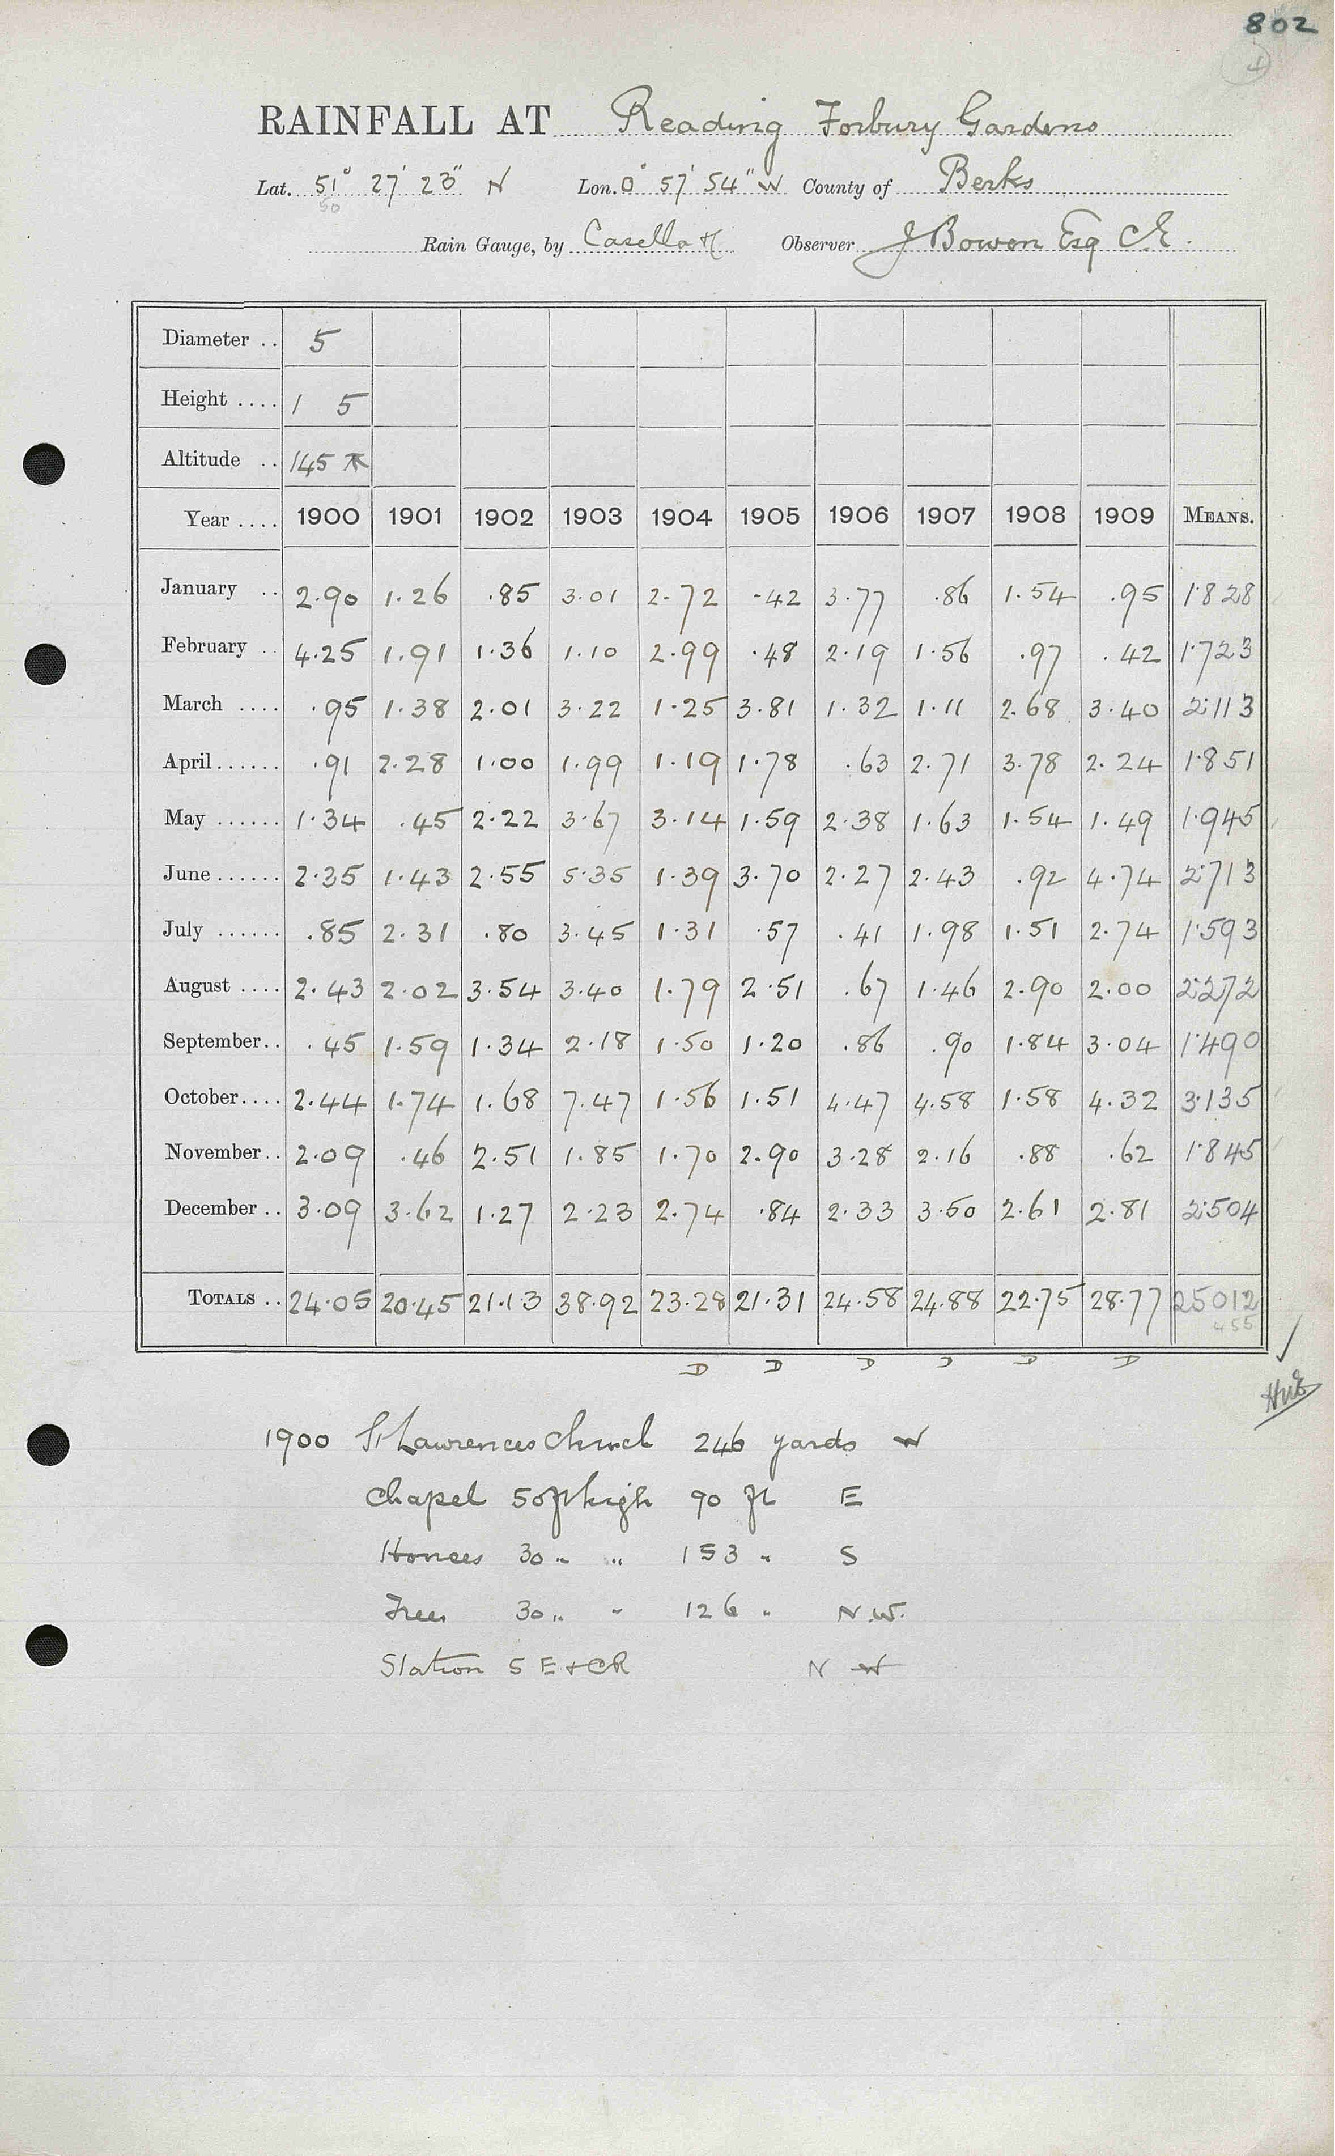 802
RAINFALL AT Reading Forbury Gardens
Lat. 51° 27' 23" N Lon. 0° 57' 54" W County of Berks
50
Rain Gauge, by Casella Observer J Bowen Esq CE
Diameter .. 5
Height .... 1 5
Altitude .. 145
Year .... 1900 1901 1902 1903 1904 1905 1906 1907 1908 1909 MEANS.
January .. 2.90 1.26 .85 3.01 2.72 .42 3.77 .86 1.54 .95 1.828
February .. 4.25 1.91 1.36 1.10 2.99 .48 2.19 1.56 .97 .42 1.723
March .... .95 1.38 2.01 3.22 1.25 3.81 1.32 1.11 2.68 3.40 2.113
April...... .91 2.28 1.00 1.99 1.19 1.78 .63 2.71 3.78 2.24 1.851
May ...... 1.34 .45 2.22 3.67 3.14 1.59 2.38 1.63 1.54 1.49 1.945
June...... 2.35 1.43 2.55 5.35 1.39 3.70 2.27 2.43 .92 4.74 2.713
July ...... .85 2.31 .80 3.45 1.31 .57 .41 1.98 1.51 2.74 1.593
August .... 2.43 2.02 3.54 3.40 1.79 2.51 .67 1.46 2.90 2.00 2.272
September.. .45 1.59 1.34 2.18 1.50 1.20 .86 .90 1.84 3.04 1.490
October.... 2.44 1.74 1.68 7.47 1.56 1.51 4.47 4.58 1.58 4.32 3.135
November.. 2.09 .46 2.51 1.85 1.70 2.90 3.28 2.16 .88 .62 1.845
December .. 3.09 3.62 1.27 2.23 2.74 .84 2.33 3.50 2.61 2.81 2.504
TOTALS .. 24.05 20.45 21.13 38.92 23.28 21.31 24.58 24.88 22.75 28.77 25012
455
D D D D D D
1900 St Lawrences Church 246 yards W
Chapel 50ft high 90 ft E
Houses 30 " " 153 " S
Trees 30 " " 126 " N.W.
Station S E & CR N W